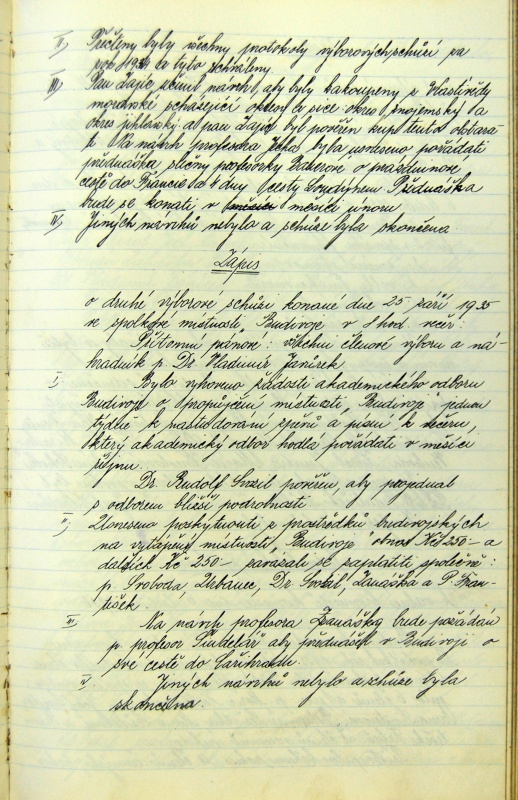 II) Přečteny byly všechny protokoly výborových schůzí za
rok 1934 a byly schváleny.
III) Pan Zajíc učinil návrh, aby byly zakoupeny z Vlastivědy
moravské scházející okresy a sice okres znojemský a
okres jihlavský a pan Zajíc byl pověřen kupi tuto obstara-
ti. Na návrh profesora bylo usneseno pořádati
přednášku slečny profesorky o prázdninové
cestě do Francie a o 8 dny cesty Přednáška
bude se konati v měsíci únoru
IV) Jiných návrhů nebylo a schůze byla skončena
Zápis
o druhé výborové schůzi konané dne 25 září 1935
ve spolkové místnosti "Budivoje" v 8 hod. večer:
Přítomni pánové: všichni členové výboru a ná-
hradník p. Dr. Vladimír Janírek
I) Bylo vyhoveno žádosti akademického odboru
Budivoje o propůjčení místnosti "Budivoje" jednou
týdně k nastudování zpěvů a písní k večeru,
který akademický odbor hodlá pořádati v měsíci
říjnu.
Dr. Rudolf Svozil pověřen, aby projednal
s odborem bližší podrobnosti
II) Usneseno poskytnouti z prostředků budivojských
na vytápění místnosti "Budivoje" obnos Kč 250 - a
dalších Kč 250 - zavázali se zaplatiti společně:
p. Svoboda, Urbanec, Dr. Svozil, Zanáška a P. Fran-
tišek.
III) Na návrh profesora Zanášky bude požádán
p. profesor Šindelář aby přednášel v Budivoji o
své cestě do Cařihradu.
IV) Jiných návrhů nebylo a schůze byla
skončena.